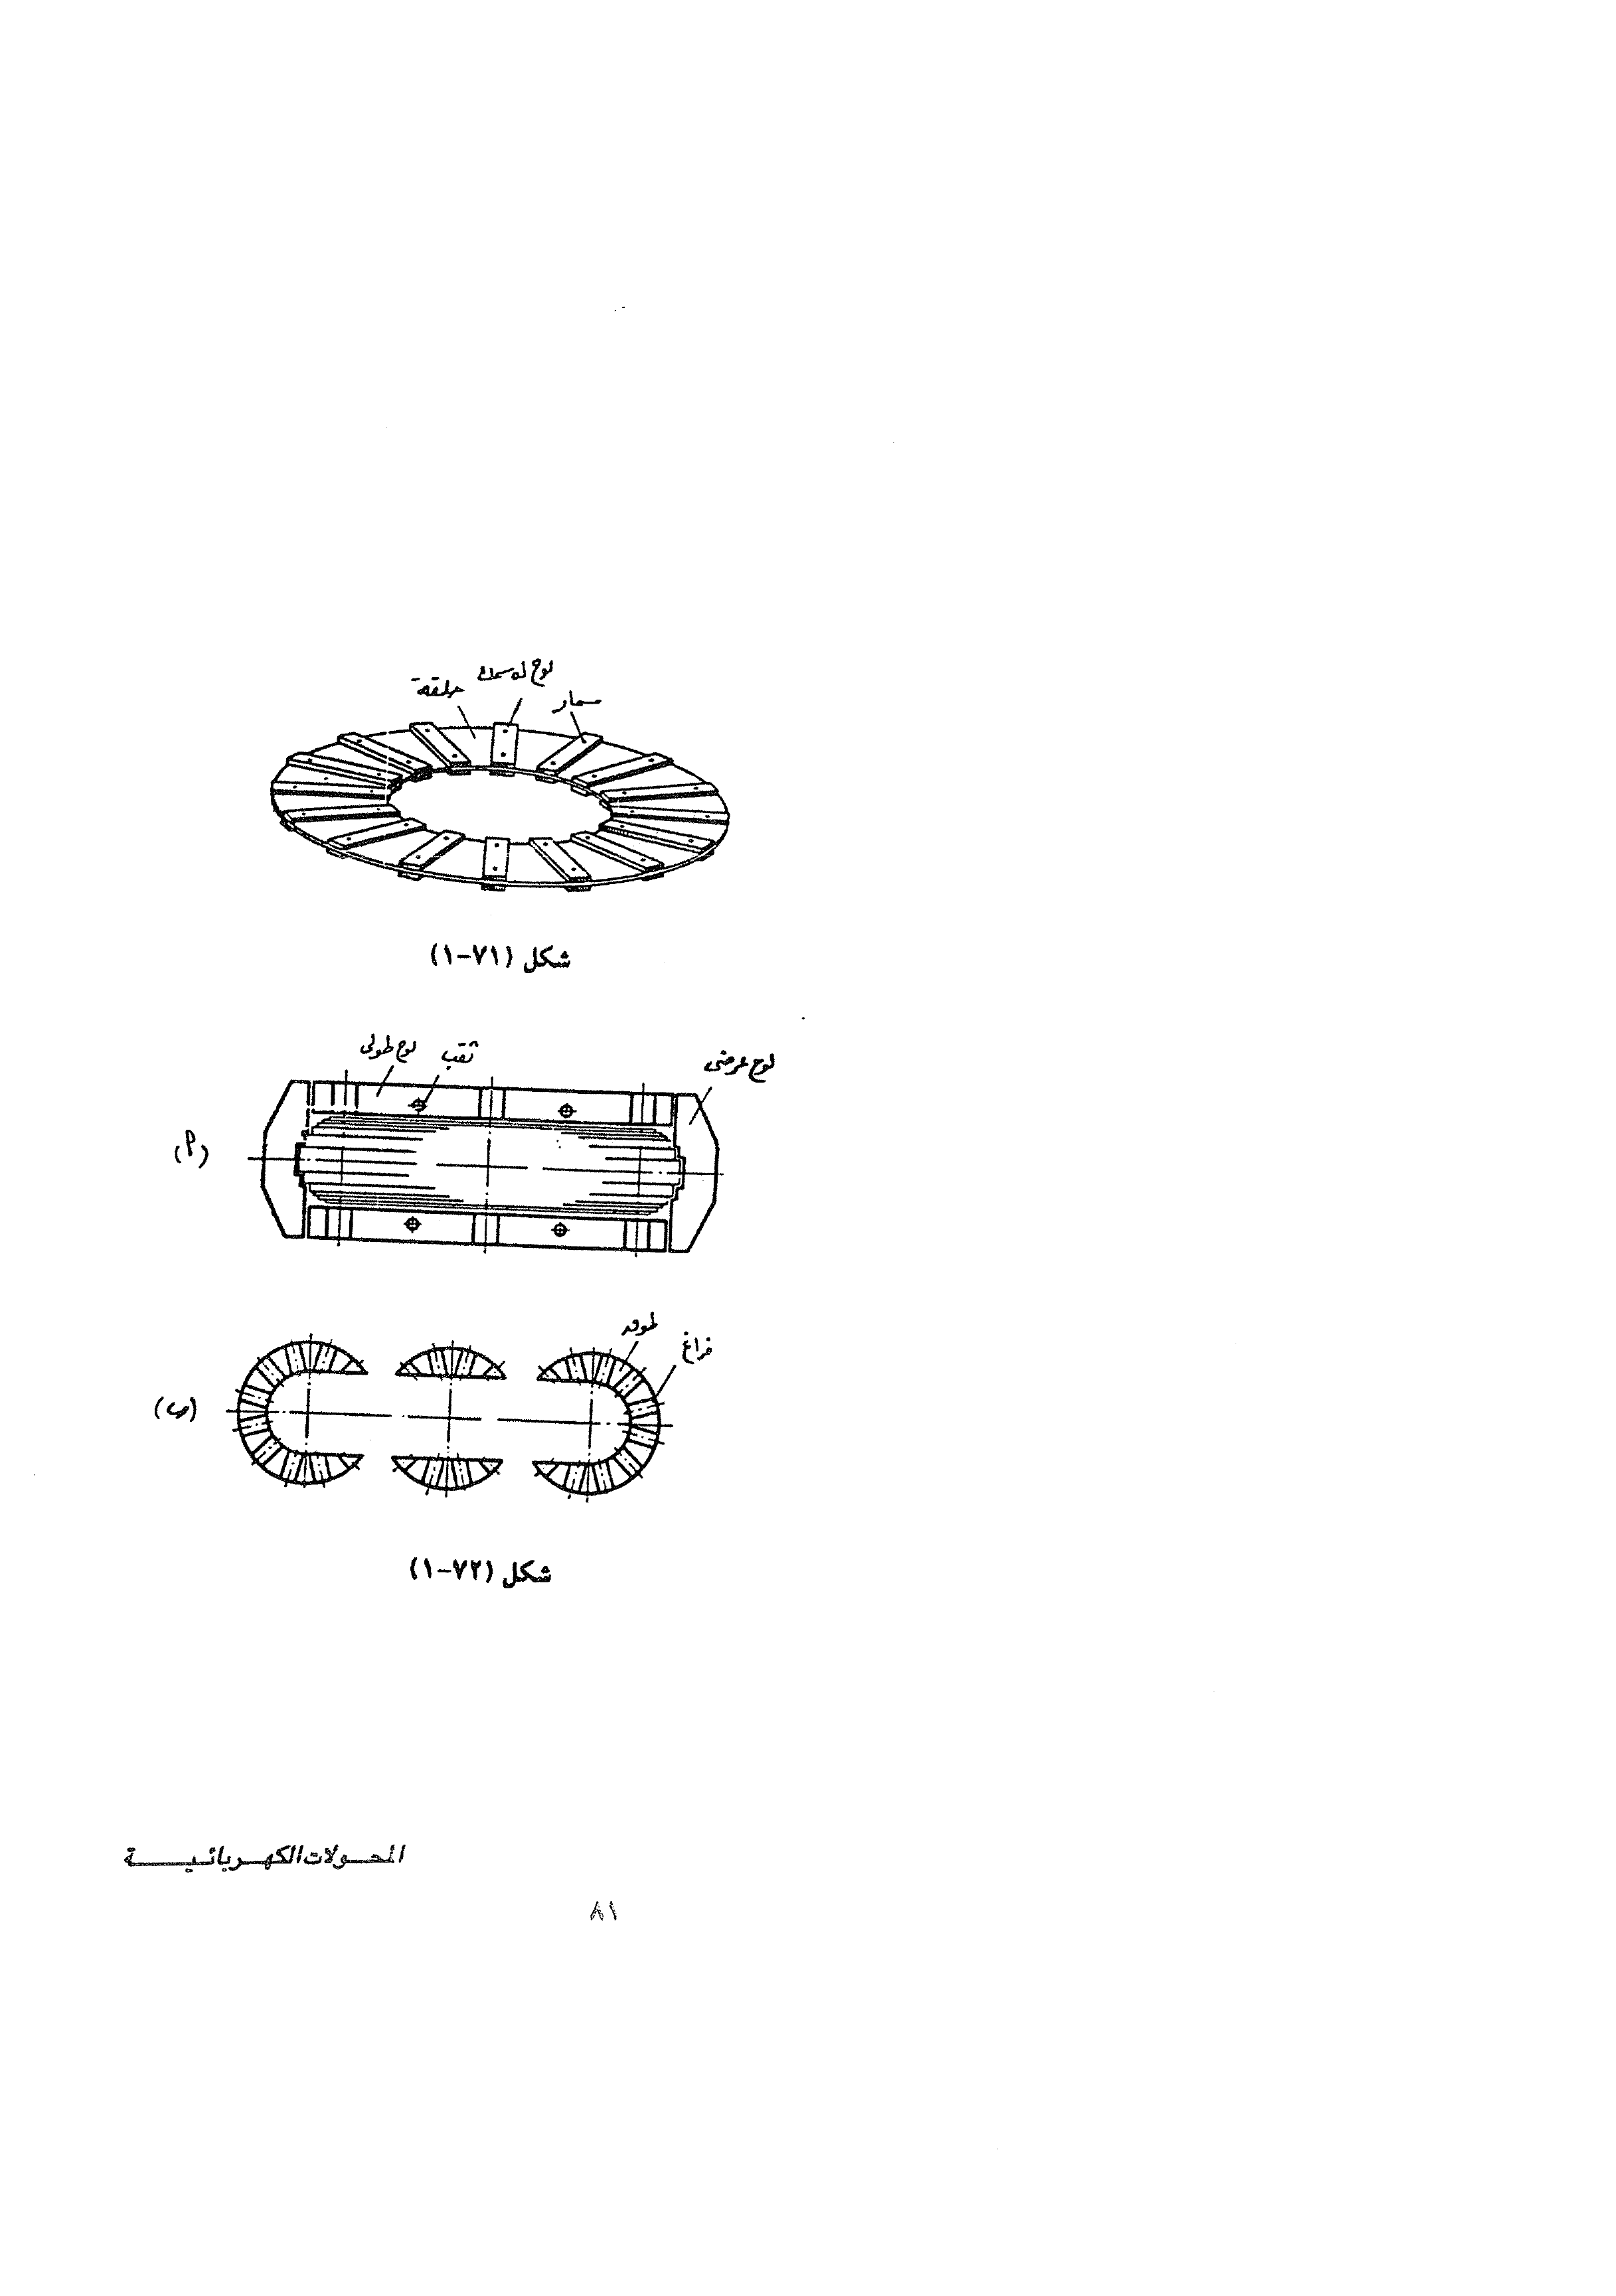 لوح له سمك
حلقة
مسمار
شكل (٧١-١)
لوح طولى
ثقب
لوح عرضى
(أ)
طوق
فراغ
(ب)
شكل (٧٢-١)
المحولات الكهربائية
٨١